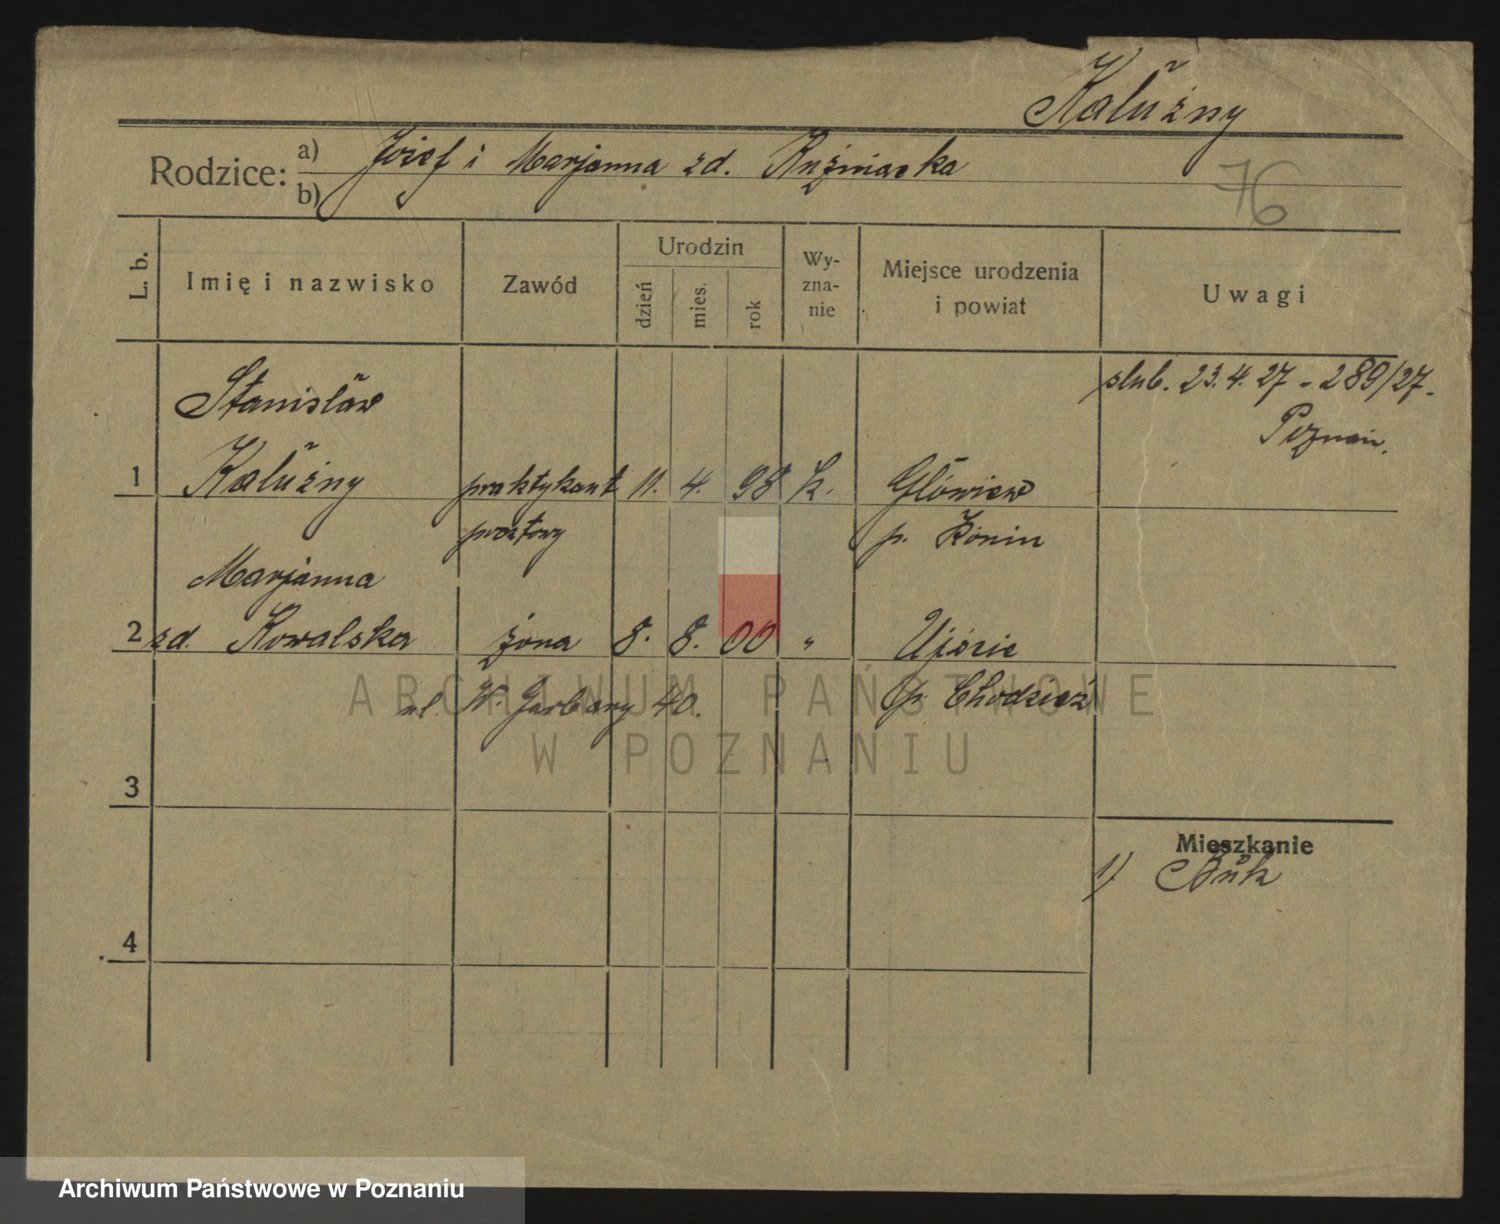 Kałużny
Rodzice: a) Józef i Marjanna zd. Kuźniacka
b)
76
L. b. Imię i nazwisko Zawód Urodzin dzień mies. rok Wyznanie Miejsce urodzenia i powiat Uwagi
ślub. 23.4.27 - 289/27.
Poznań.
Stanisław
1 Kałużny praktykant 11. 4. 98 k. Główiew
pocztowy p. Konin
Marjanna
2 zd. Kowalska żona 8. 8. 00 " Ujście
ul. W. Garbary 40. p. Chodzież
ARCHIWUM PAŃSTWOWE
W POZNANIU
3
Mieszkanie
1) Buk
4
Archiwum Państwowe w Poznaniu